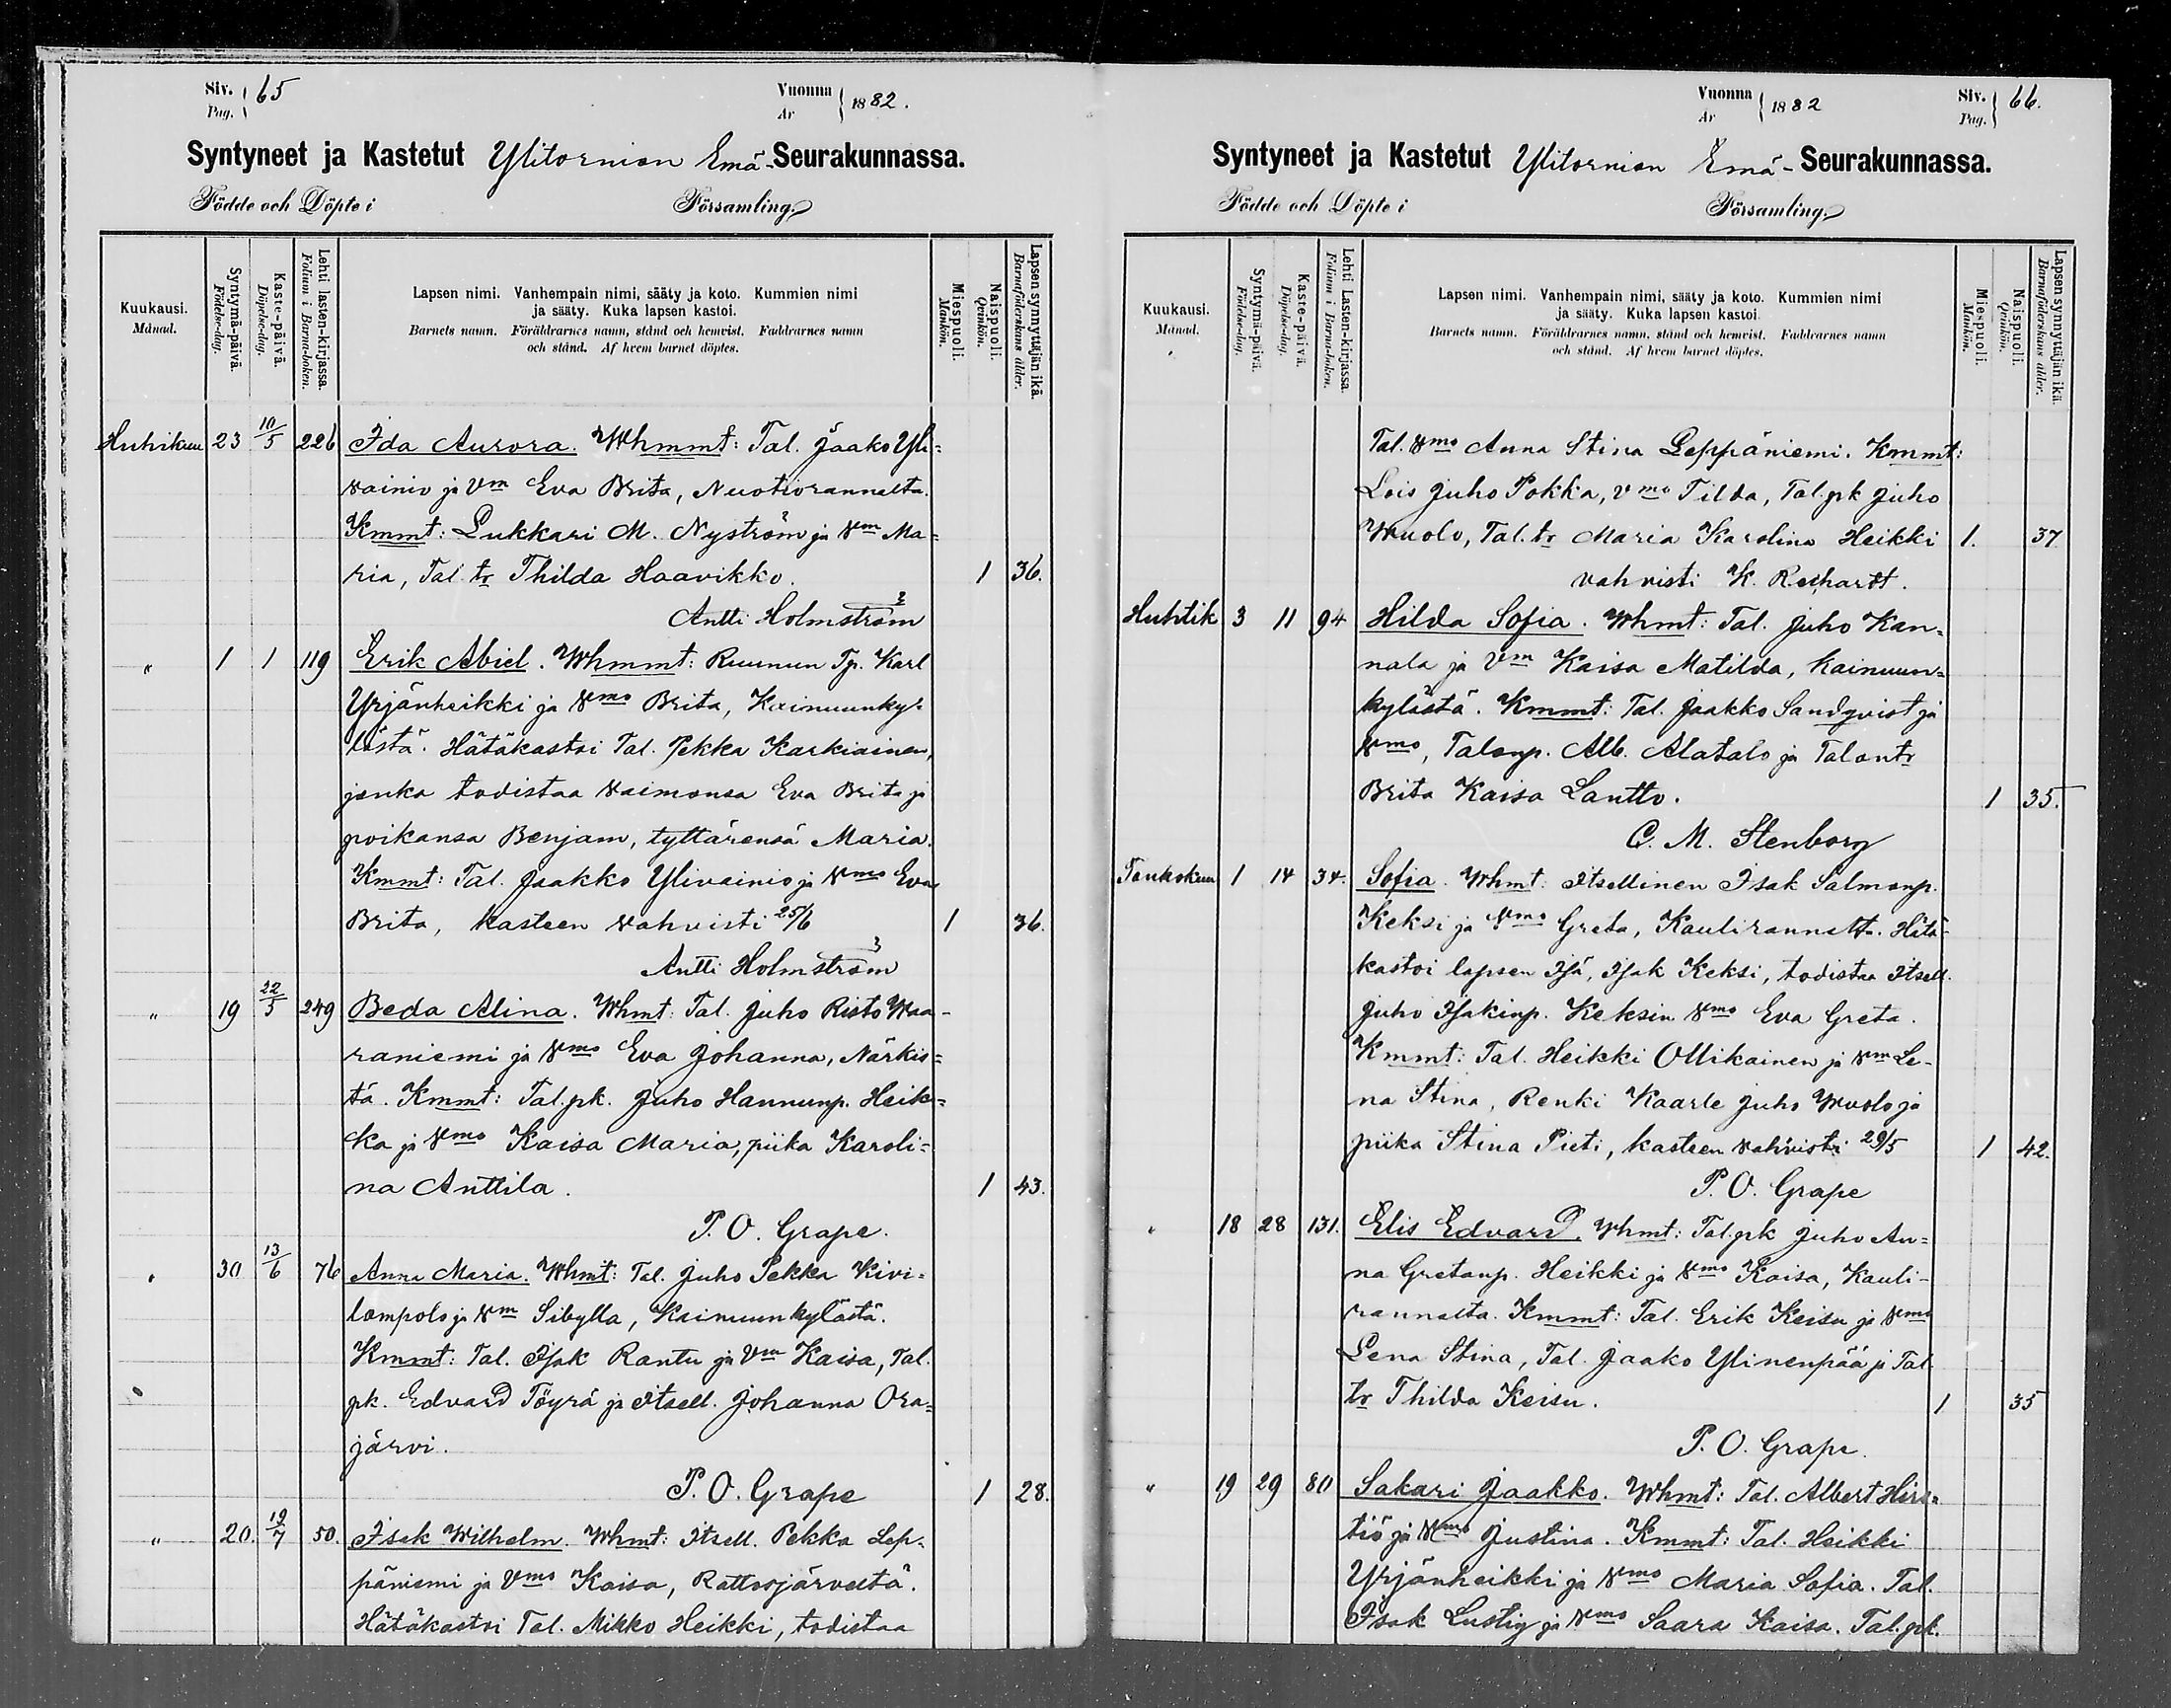 Siv. Pag. } 65
Vuonna År } 1882.
Syntyneet ja Kastetut Ylitornion Emä-Seurakunnassa.
Födde och Döpte i Församling.
Kuukausi. Månad.
Syntymä-päivä. Födelse-dag.
Kaste-päivä. Döpelse-dag.
Lehti lasten-kirjassa. Folium i Barna-boken.
Lapsen nimi. Vanhempain nimi, sääty ja koto. Kummien nimi
ja sääty. Kuka lapsen kastoi.
Barnets namn. Föräldrarnes namn, stånd och hemvist. Faddrarnes namn
och stånd. Af hvem barnet döptes.
Miespuoli. Mankön.
Naispuoli. Qvinkön.
Lapsen synnyttäjän ikä. Barnaföderskans ålder.
Huhtikuu 23 10/5 226 Ida Aurora. Whmmt: Tal. Jaako Yli=
vainio ja Vm Eva Brita, Nuotiorannalta.
Kmmt: Lukkari M. Nyström ja Vm Ma=
ria, Tal. tr Thilda Haavikko. 1 36.
Antti Holmström
" 1 1 119 Erik Abiel. Whmmt: Ruunun Tp. Karl
Yrjänheikki ja Vmo Brita, Kainuunky=
lästä. Hätäkastoi Tal. Pekka Karkiainen,
jonka todistaa vaimonsa Eva Brita ja
poikansa Benjam, tyttärensä Maria.
Kmmt: Tal. Jaakko Ylivainio ja Vmo Eva
Brita, kasteen vahvisti 25/6 1 36.
Antti Holmström
" 19 22/5 249 Beda Alina. Whmt: Tal. Juho Risto Waa-
raniemi ja Vmo Eva Johanna, Närkis=
tä. Kmmt: Tal. pk. Juho Hannunp. Heik=
ka ja Vmo Kaisa Maria, piika Karoli=
na Anttila. 1 43.
P. O. Grape.
" 30 13/6 76 Anna Maria. Whmt: Tal. Juho Pekka Kivi=
lompolo ja Vm Sibylla, Kainuunkylästä.
Kmmt: Tal. Isak Rantu ja Vm Kaisa, Tal.
pk. Edvard Töyrä ja Itsell. Johanna Ora=
järvi.
P. O. Grape 1 28.
" 20. 19/7 50. Isak Wilhelm. Whmt: Itsell. Pekka Lep=
päniemi ja Vmo Kaisa, Rattosjärveltä.
Hätäkastoi Tal. Mikko Heikki, todistaa
Vuonna År } 1882
Siv. Pag. } 66.
Syntyneet ja Kastetut Ylitornion Emä-Seurakunnassa.
Födde och Döpte i Församling.
Kuukausi. Månad.
Syntymä-päivä. Födelse-dag.
Kaste-päivä. Döpelse-dag.
Lehti Lasten-kirjassa. Folium i Barna-boken.
Lapsen nimi. Vanhempain nimi, sääty ja koto. Kummien nimi
ja sääty. Kuka lapsen kastoi.
Barnets namn. Föräldrarnes namn, stånd och hemvist. Faddrarnes namn
och stånd. Af hvem barnet döptes.
Miespuoli. Mankön.
Naispuoli. Qvinkön.
Lapsen synnyttäjän ikä. Barnaföderskans ålder.
Tal. Vmo Anna Stina Leppäniemi. Kmmt:
Lois Juho Pokka, Vmo Tilda, Tal. pk Juho
Wuolo, Tal. tr Maria Karolina Heikki 1. 37
vahvisti K. Rechardt.
Huhtik 3 11 94 Hilda Sofia. Whmt: Tal. Juho Kan=
nala ja Vm Kaisa Matilda, Kainuun=
kylästä. Kmmt: Tal. Jaakko Sandqvist ja
Vmo, Talonp. Alb. Alatalo ja Talontr
Brita Kaisa Lantto. 1 35.
C. M. Stenborg
Toukokuu 1 14 34. Sofia. Whmt: Itsellinen Isak Salmonp.
Keksi ja Vmo Greta, Kaulirannalta. Hätä-
kastoi lapsen Isä, Isak Keksi, todistaa Itsell.
Juho Isakinp. Keksin Vmo Eva Greta.
Kmmt: Tal. Heikki Ollikainen ja Vm Le-
na Stina, Renki Kaarle Juho Wuolo ja
piika Stina Pieti, kasteen vahvisti 29/5 1 42.
P. O. Grape
" 18 28 131. Elis Edvard. Whmt: Tal. pk Juho An=
na Gretanp. Heikki ja Vmo Kaisa, Kauli-
rannalta. Kmmt: Tal. Erik Keisu ja Vmo
Lena Stina, Tal. Jaako Ylinenpää ja Tal.
tr Thilda Keisu. 1 35
P. O. Grape.
" 19 29 80 Sakari Jaakko. Whmt: Tal. Albert Hirs=
tiö ja Vmo Justina. Kmmt: Tal. Heikki
Yrjänheikki ja Vmo Maria Sofia. Tal.
Isak Lustig ja Vmo Saara Kaisa. Tal. pk.